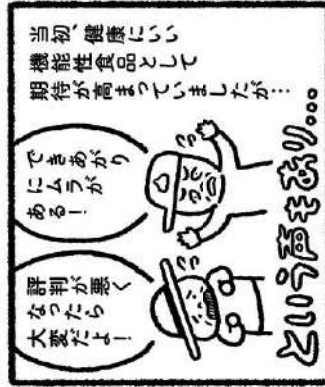 当初、健康にいい
機能性食品として
期待が高まっていましたが…
できあがり
にムラが
ある！
評判が悪く
なったら
大変だよ！
という声もあり…